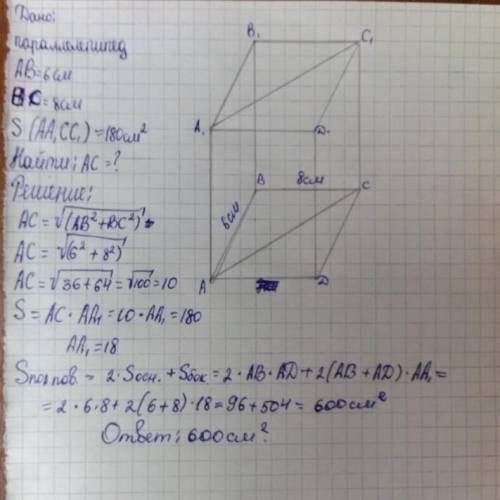 Дано:
параллелепипед
AB=6см
BC=8см
S(AA₁CC₁)=180см²
Найти: AC=?
Решение:
AC=√(AB²+BC²)=
AC=√6²+8²
AC=√36+64=√100=10
S=AC·AA₁=10·AA₁=180
AA₁=18
Sпол.пов.=2·Sосн.+Sбок=2·AB·AD+2(AB+AD)·AA₁=
=2·6·8+2(6+8)·18=96+504=600см²
Ответ: 600см².
B₁
C₁
A₁
D₁
B
8см
C
6см
A
D